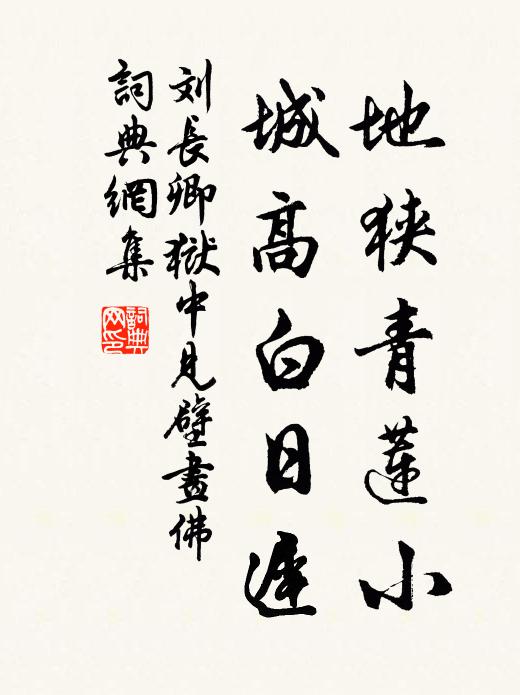 地狹青蓮小
城高白日遲
刘長卿獄中見壁畫佛
詞典網集
詞典
网印